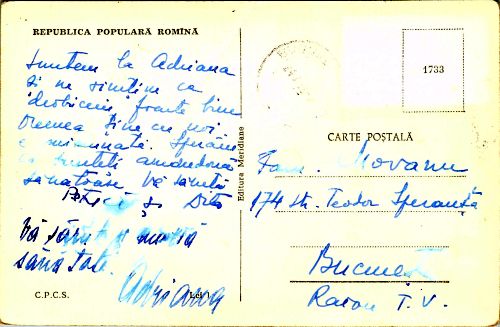 REPUBLICA POPULARĂ ROMÎNĂ
Suntem la Adriana
și ne simțim ca
deobicei foarte bine
Vremea ține cu noi
e minunată. Sperăm
că sunteți amândouă
sănătoase. Vă sărută
și
Vă sărut
sănătate.
Adriana
C.P.C.S.
Lei 1
Editura Meridiane
1733
CARTE POSTALĂ
Fam.
174 str. Teodor Speranță
București
Raion T. V.